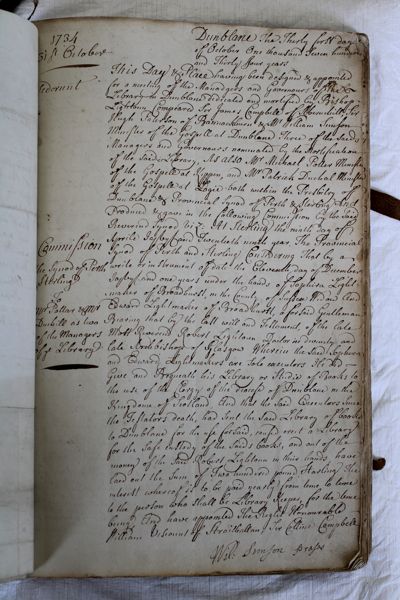 1734
31st October
Sederunt
Dunblane The Thirty first day
of October One thousand Seven hundred
and Thirty four years
This Day & Place having been designed & appointed
for a meeting of the Managers and Governours of the
Library at Dunblane dedicated and mortified by Bishop
Lightoun Compeared Sir James Campbell of Aberuchill, Sir
Hugh Paterson of Bannockburn & Mr William Simson
Minister of the Gospell at Dunblane Three of the Said
Managers and Governours nominated by the Mortification
of the said Library, As also Mr Michael Potter Minister
of the Gospell at Kippen, and Mr Patrick Duchal Minister
of the Gospell at Logie both within the Presbitry of
Dunblane & Provincial Synod of Perth & Sterling And
Produced & gave in the following Commission by the Said
Reverend Synod Viz. At Sterling the ninth day of
Aprile Jajvij and Twentieth ninth year The Provincial
Synod of Perth and Sterling Considering That by a
write or Instrument of date the Eleventh day of December
Jajvij and one years under the hands of Sophira Light
maker of Broadhurst, in the County of Sussex Wid and And
Edward Lightmaker of Broadhurst, aforesaid Gentleman
Bearing that by the last will and Testament of the Late
Most Reverend Robert Lightoun Doctor in divinity and
late Archbishop of Glasgow Wherein the Said Sophira
and Edward Lightmakers are Sole executors He Did
Give and Bequeath his Library or Studie of Books to
the use of the Clergy of the Diocess of Dunblane in the
Kingdome of Scotland And that the said Executors Since
the Testators death, had Sent the Said Library of Books
to Dunblane for the use foresaid, and erect a Library
for the Safe Custody of the Saids books, and out of the
money of the Said Robert Lightoun in their hands have
laid out the Sum of Two hundred pound Sterling The
interest whereof is to be paid yearly from time, to time
to the person who Shall be Library Keeper, for the time
being And have appointed The Right Honourable
William Viscount of Strathallan, Sir Colline Campbell
Will: Simson Preses
Commission
the Synod of Perth
& Sterling
Mr Potter & Mr
Duchall as two
of the Managers
of the Library